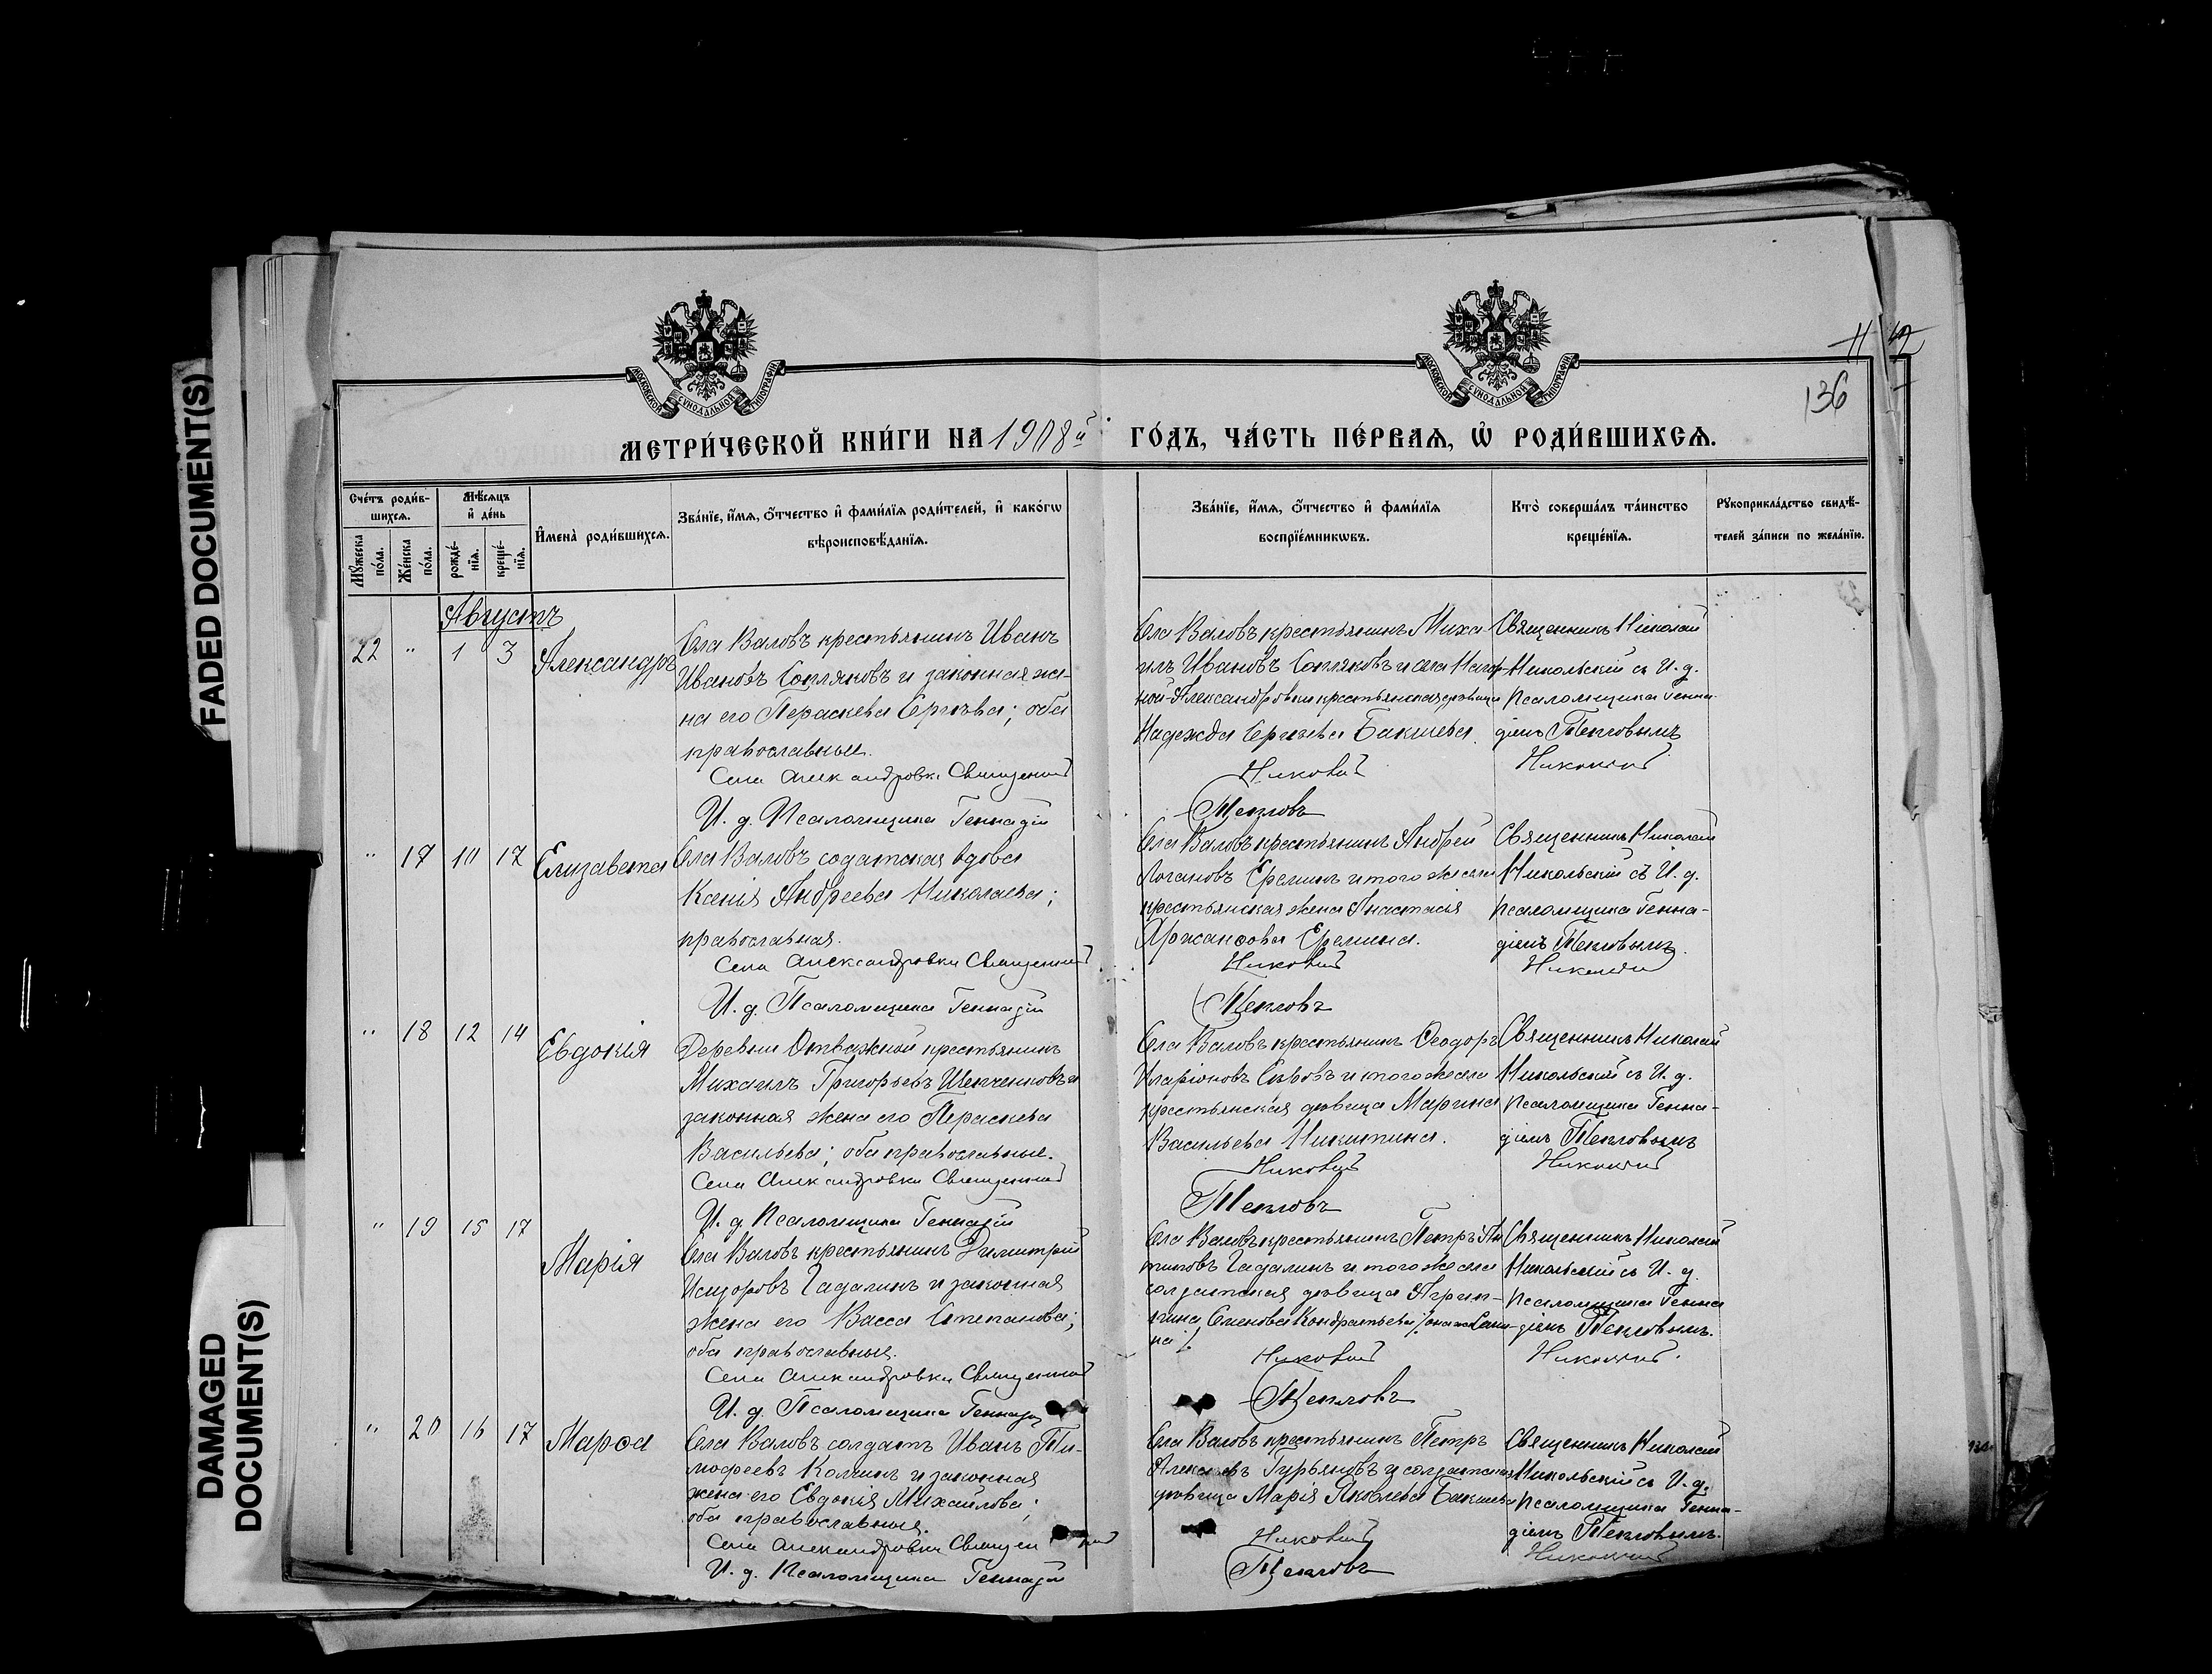 FADED DOCUMENT(S)
DAMAGED
DOCUMENT(S)
МОСКОВСКОЙ СУНОДАЛЬНОЙ ТИПОГРАФІИ
МОСКОВСКОЙ СУНОДАЛЬНОЙ ТИПОГРАФІИ
136
МЕТРИ́ЧЕСКОЙ КНИ́ГИ НА 1908й ГО́ДЪ, ЧА́СТЬ ПЕ́РВАѦ, Ѡ҆ РОДИ́ВШИХСѦ.
Сче́тъ роди́в-
шихсѧ.
Мѣ́сѧцъ
и҆ де́нь
Мꙋ́жеска
по́ла.
Же́нска
по́ла.
рожде́-
нїѧ.
креще́-
нїѧ.
И҆мена̀ роди́вшихсѧ.
Зва́нїе, и҆́мѧ, ѻ҆́тчество и҆ фами́лїѧ роди́телей, и҆ како́гѡ
вѣроисповѣ́данїѧ.
Зва́нїе, и҆́мѧ, ѻ҆́тчество и҆ фами́лїѧ
воспрїе́мникѡвъ.
Кто̀ соверша́лъ та́инство
креще́нїѧ.
Рꙋкоприкла́дство свидѣ́-
телей за́писи по жела́нїю.
Августъ
22 " 1 3 Александръ
Села Валовъ крестьянинъ Иванъ
Ивановъ Сопляковъ и законная же-
на его Параскева Сергѣева; оба
православные.
Села Александровки Священникъ
И. д. Псаломщика Геннадій
Села Валовъ крестьянинъ Миха-
илъ Ивановъ Сопляковъ и села
Александровки крестьянская дѣвица
Надежда Сергѣева Бакшева.
Никольскій
Тепловъ
Священникъ Николай
Никольскій съ И. д.
Псаломщика Генна-
діемъ Тепловымъ
Никольскій
" 17 10 17 Елизавета
Села Валовъ содатская вдова
Ксенія Андреева Николаева;
православная.
Села Александровки Священникъ
И. д. Псаломщика Геннадій
Села Валовъ крестьянинъ Андрей
Еремин и того же села
крестьянская жена Анастасія
Еремина.
Никольскій
Тепловъ
Священникъ Николай
Никольскій съ И. д.
псаломщика Генна-
діемъ Тепловымъ.
Никольскій
" 18 12 14 Евдокія
Деревни Отважной крестьянинъ
Михаилъ Григорьевъ Шевченковъ и
законная жена его Параскева
Васильева; оба православные.
Села Александровки Священникъ
И. д. Псаломщика Геннадій
Села Валовъ крестьянинъ Ѳеодоръ
Иларіоновъ и того же села
крестьянская дѣвица Марина
Васильева Никитина.
Никольскій
Тепловъ
Священникъ Николай
Никольскій съ И. д.
псаломщика Генна-
діемъ Тепловымъ
Никольскій
" 19 15 17 Марія
Села Валовъ крестьянинъ Димитрій
Исидоровъ Гадалинъ и законная
жена его Васса Степанова;
оба православные.
Села Александровки Священникъ
И. д. Псаломщика Геннадій
Села Валовъ крестьянинъ Петръ
Гадалинъ и того же села
солдатская дѣвица Агрип-
пина Семенова Кондратьева
Никольскій
Тепловъ
Священникъ Николай
Никольскій съ И. д.
Псаломщика Генна
діемъ Тепловымъ.
Никольскій.
" 20 16 17 Марѳа
Села Валовъ солдатъ Иванъ Ти-
мофеевъ Колчинъ и законная
жена его Евдокія Михаилова;
оба православные.
Села Александровки Священникъ
И. д. Псаломщика Геннадій
Села Валовъ крестьянинъ Петръ
Алексѣевъ Гурьяновъ и солдатская
дѣвица Марія Яковлева Бакшева
Никольскій
Тепловъ
Священникъ Николай
Никольскій съ И. д.
псаломщика Генна-
діемъ Тепловымъ.
Никольскій